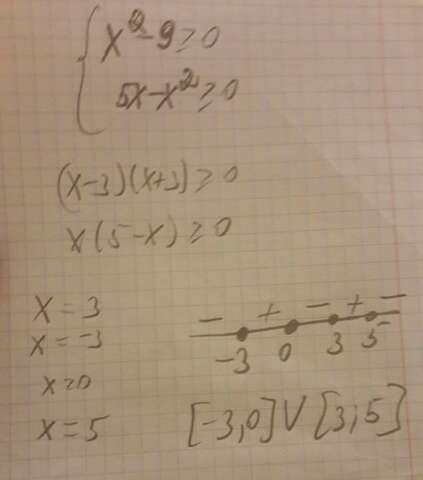 x²-9≥0
5x-x²≥0
(x-3)(x+3)≥0
x(5-x)≥0
x=3
x=-3
x=0
x=5
- + - + -
-3 0 3 5
[-3,0]V[3;5]